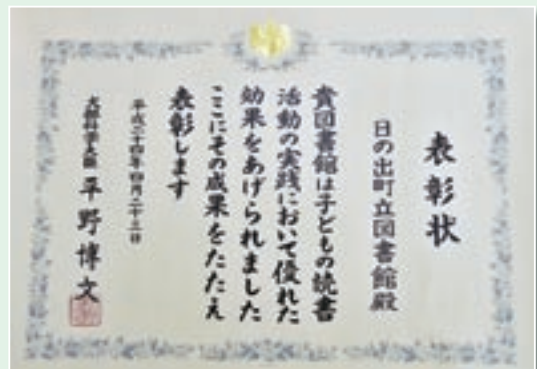 表彰状
日の出町立図書館殿
貴図書館は子どもの読書
活動の実践において優れた
効果をあげられました
ここにその成果をたたえ
表彰します
平成二十四年四月二十三日
文部科学大臣 平野博文